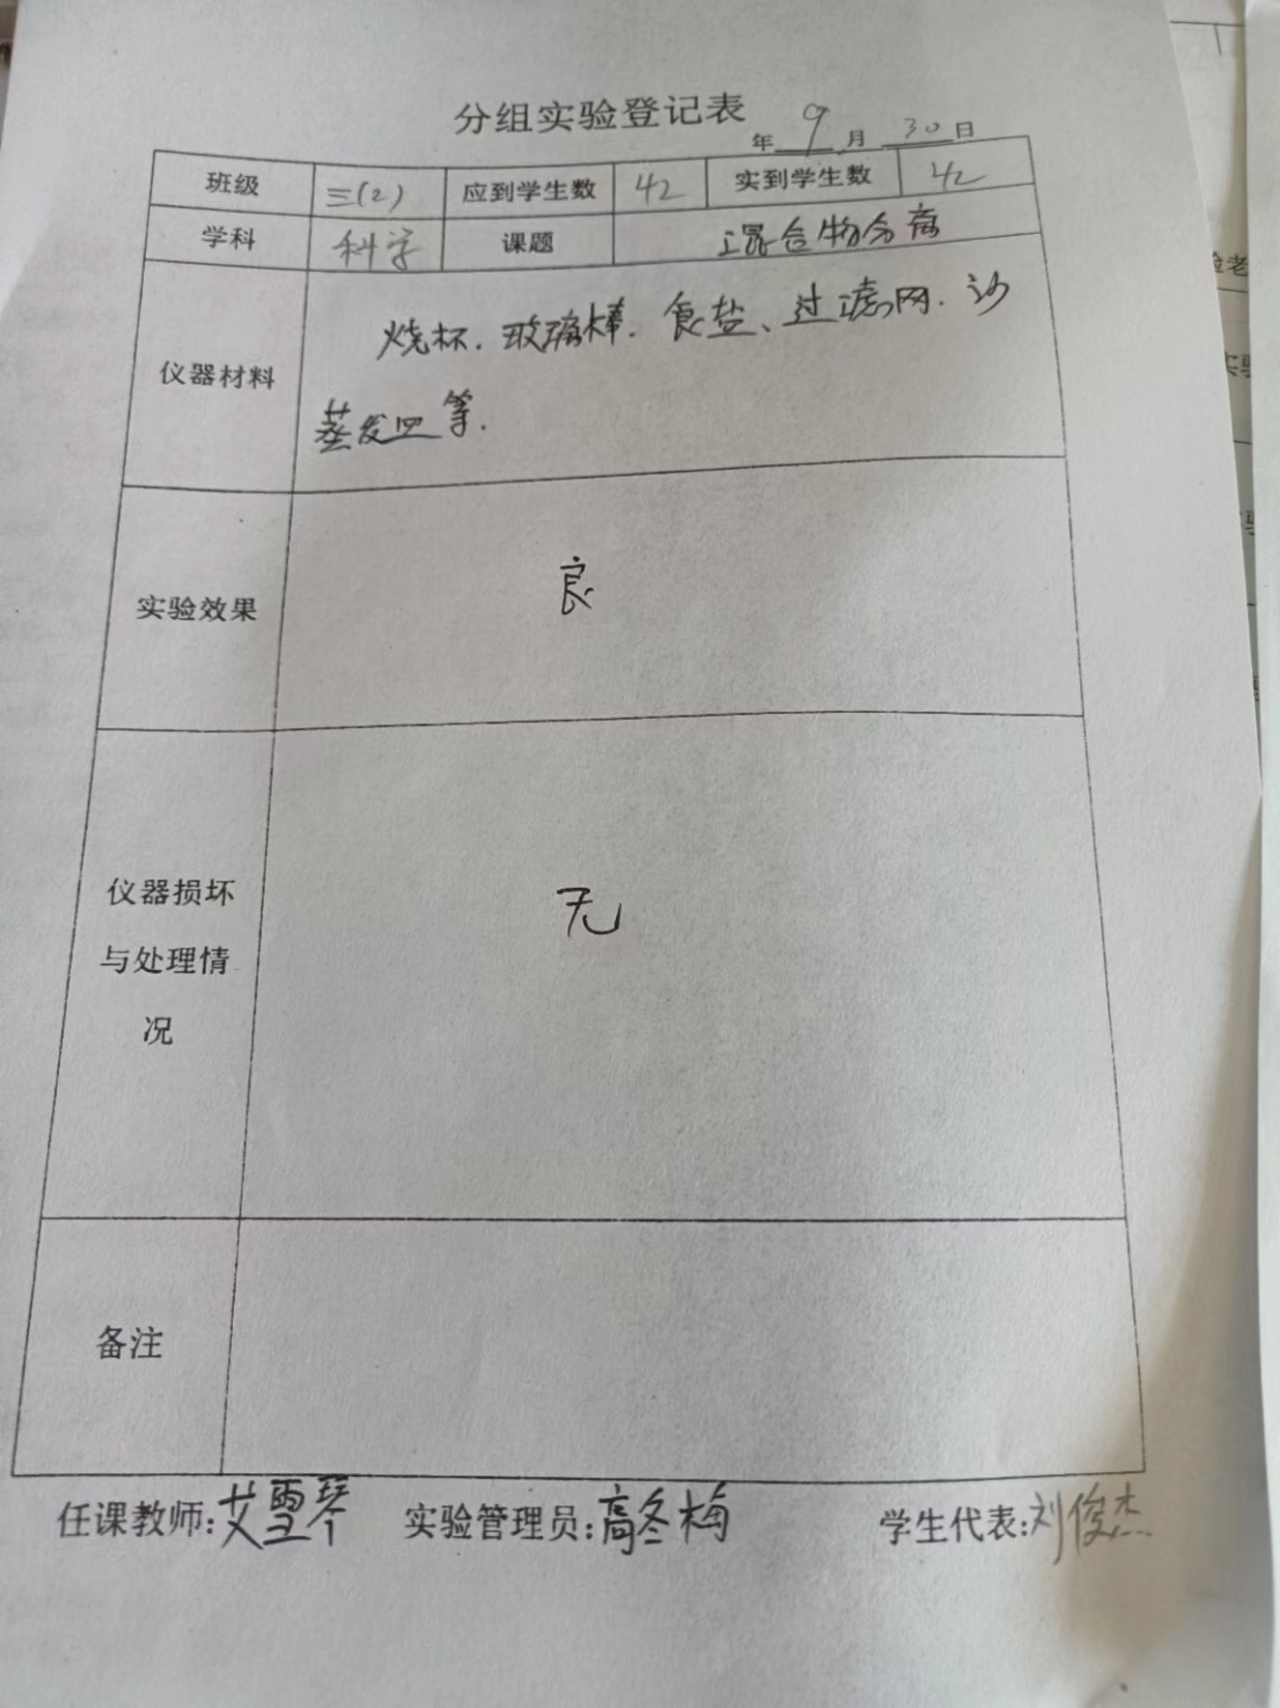 分组实验登记表
年 9 月 30 日
班级 三(2) 应到学生数 42 实到学生数 42
学科 科学 课题 混合物分离
仪器材料 烧杯.玻璃棒.食盐、过滤网.沙
蒸发皿等.
实验效果 良
仪器损坏
与处理情
况
无
备注
任课教师:艾雪琴 实验管理员:高冬梅 学生代表:刘俊杰